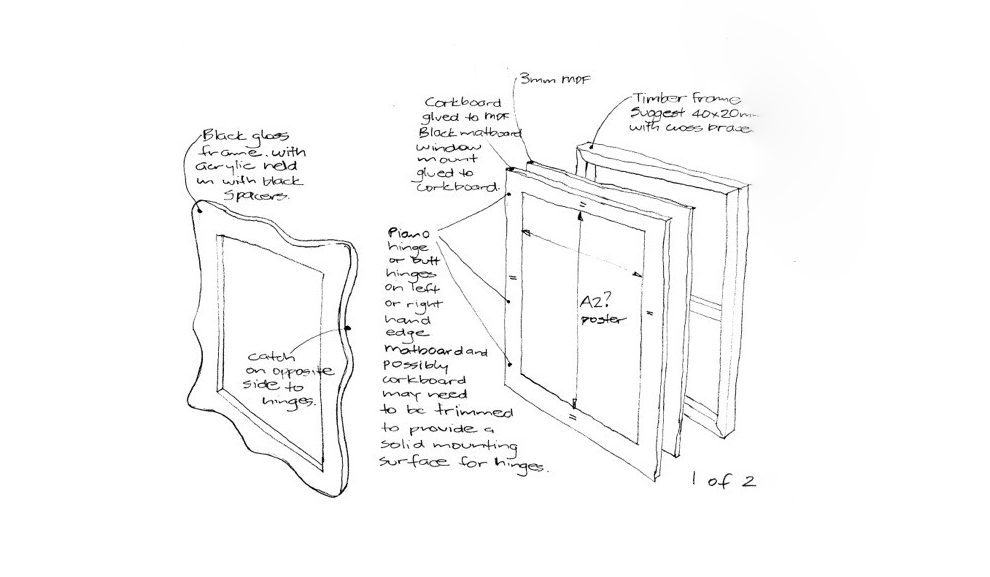 3mm MDF
Corkboard
glued to MDF
Black matboard
window
mount
glued to
corkboard.
Timber frame
Suggest 40x20mm
with cross brace
Black gloss
frame with
acrylic held
in with black
spacers.
Piano
hinge
or butt
hinges
on left
or right
hand
edge
matboard and
possibly
corkboard
may need
to be trimmed
to provide a
solid mounting
surface for hinges.
A2?
poster
catch
on opposite
side to
hinges.
1 of 2